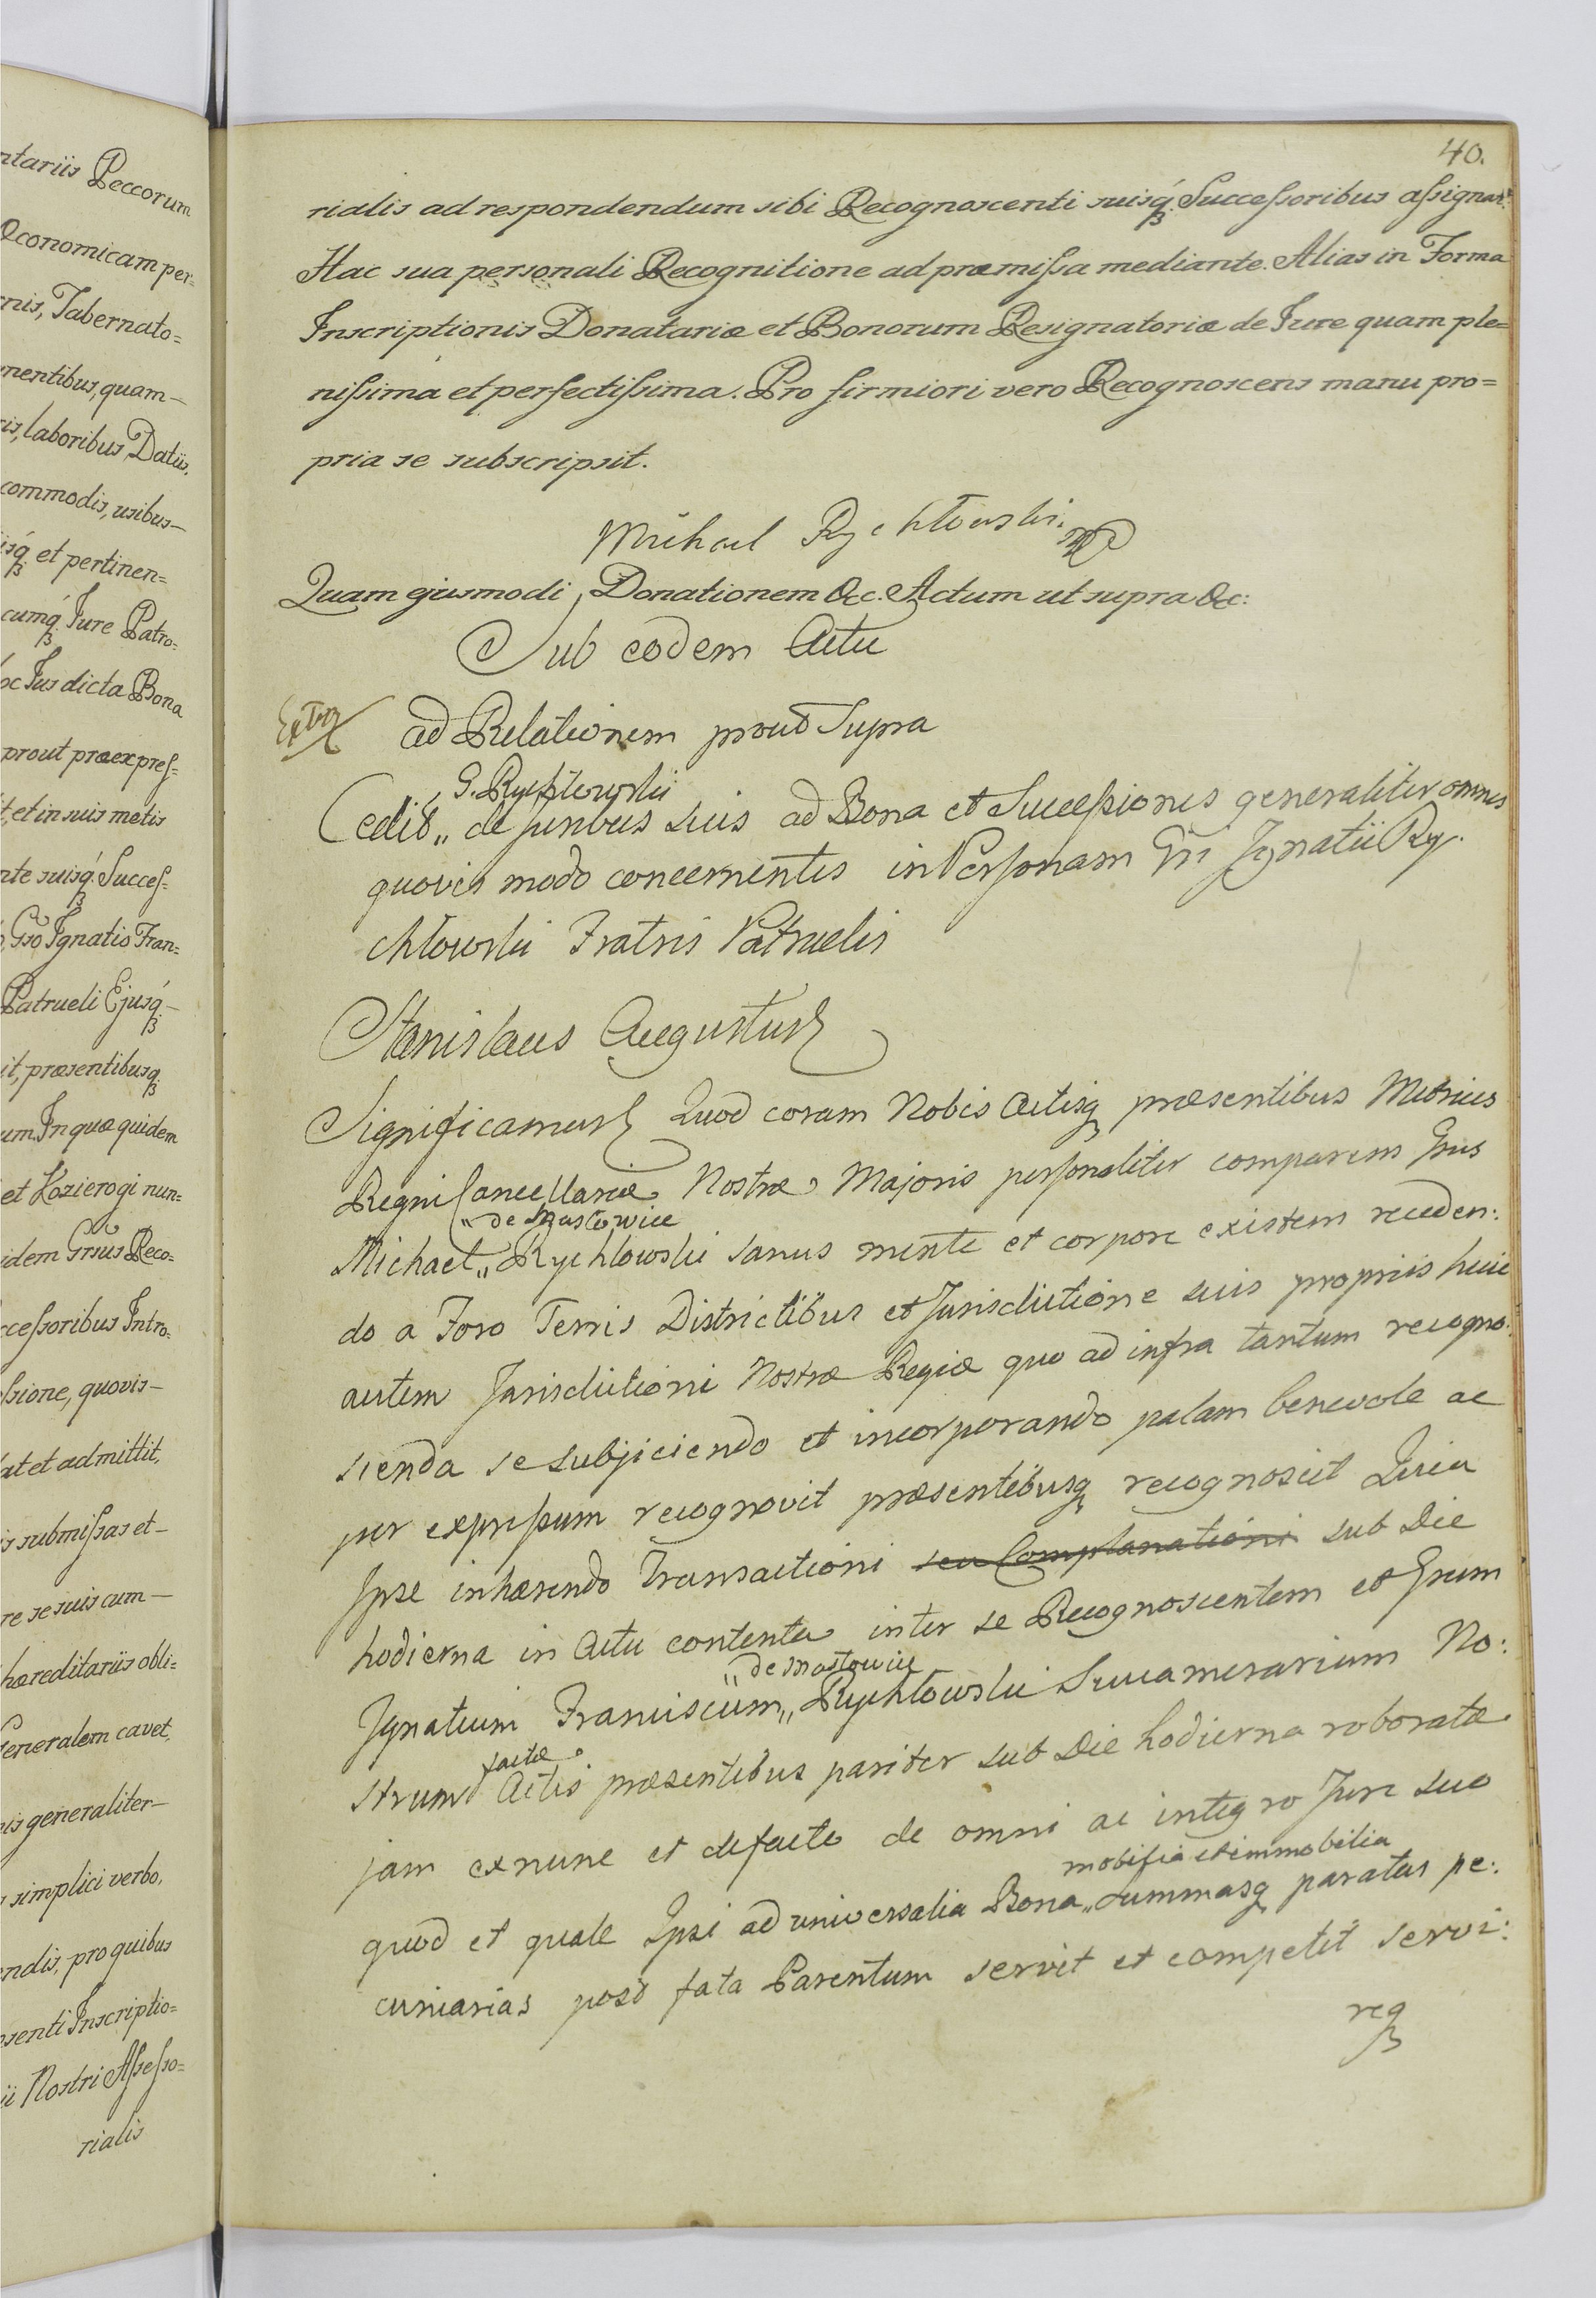 ntariis Peccorum
Oeconomicam per-
rnis, Tabernato=
nentibus, quam-
ris, laboribus, Datiis,
commodis, usibus-
isq₃ et pertinen=
cumq₃ Jure Patro=
oc Jus dicta Bona
prout praeexpres=
t, et in suis metis
nte suisq₃ Succes=
Gso Ignatio Fran=
Patrueli Ejusq₃-
it, praesentibusq₃
um. In quae quidem
et Kozierogi nun=
idem Grsus Reco=
ccessoribus Intro=
ssione, quovis-
at et admittit,
is submissas et-
re se suis cum-
haereditariis obli=
Generalem cavet,
is generaliter-
simplici verbo,
endis, pro quibus
esenti Inscriptio=
ii Nostri Assesso=
rialis
40.
rialis ad respondendum sibi Recognoscenti suisq₃ Successoribus assignat.
Hac sua personali Recognitione ad praemissa mediante. Alias in Forma
Inscriptionis Donatariae et Bonorum Resignatoriae de Jure quam ple=
nissima et perfectissima. Pro firmiori vero Recognoscens manu pro=
pria se subscripsit.
Michael Rychłowski. mp
Quam ejusmodi Donationem &c. Actum ut supra &c:
Sub eodem Actu
Extr
ad Relationem prout Supra
G. Rychłowski
Cedit „ de juribus suis ad Bona et Successiones generaliter omnes
quovis modo concernentes in Personam Gsi Ignatii Ry-
chłowski Fratris Patruelis
Stanislaus Augustus
Significamus Quod coram Nobis Actisq₃ praesentibus Metrices
Regni Cancellariae Nostrae Majoris personaliter comparens Gsus
„ de Mastowice
Michael „ Rychłowski sanus mente et corpore existens receden:
do a Foro Terris Districtibus et Jurisdictione suis propriis huic
autem Jurisdictioni Nostrae Regiae quo ad infra tantum recogno:
scenda se subjiciendo et incorporando palam benevole ac
per expressum recognovit praesentibusq₃ recognoscit Quia
Ipse inhaerendo Transactioni seu Complanationi sub Die
hodierna in Actu contenta inter se Recognoscentem et Gsum
„ de Mastowice
Ignatium Franciscum „ Rychłowski Succamerarium No:
factae
strum Actis praesentibus pariter sub Die hodierna roboratae
jam exnunc et defacto de omni ac integro Jure suo
mobilia et immobilia
quod et quale Ipsi ad universalia Bona „ Summasq₃ paratas pe:
cuniarias post fata Parentum servit et competit servi:
req₃